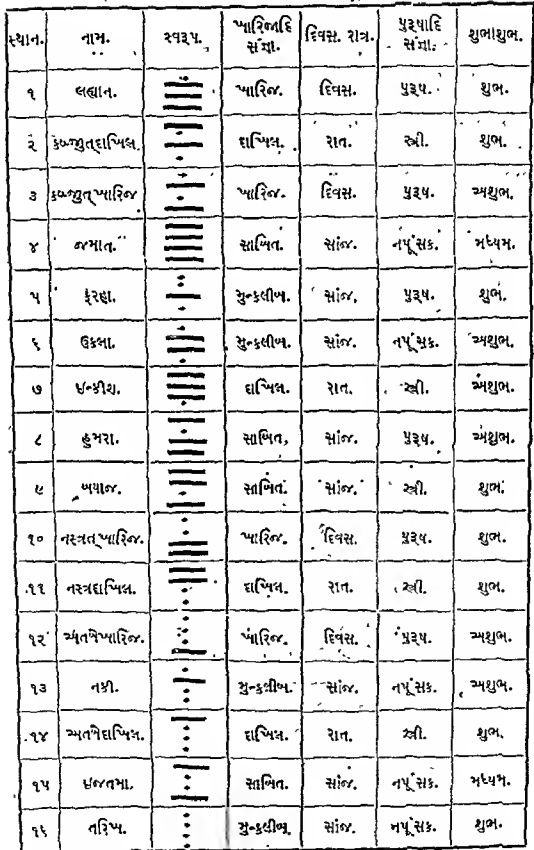 સ્થાન. નામ. સ્વરૂપ. ખારિજાદિ સંજ્ઞા. દિવસ. રાત્ર. પુરૂષાદિ સંજ્ઞા. શુભાશુભ.
૧ લહ્યાન. ખારિજ. દિવસ. પુરૂષ. શુભ.
૨ કબ્જુત્દાખિલ. દાખિલ. રાત. સ્ત્રી. શુભ.
૩ કબ્જુત્ખારિજ ખારિજ. દિવસ. પુરૂષ. અશુભ.
૪ જમાત. સાબિત. સાંજ. નપૂંસક. મધ્યમ.
૫ ફરહા. મુન્કલીબ. સાંજ. પુરૂષ. શુભ.
૬ ઉકલા. મુન્કલીબ. સાંજ. નપૂંસક. અશુભ.
૭ ઇન્કીશ. દાખિલ. રાત. સ્ત્રી. અશુભ.
૮ હુમરા. સાબિત. સાંજ. પુરૂષ. અશુભ.
૯ બયાજ. સાબિત. સાંજ. સ્ત્રી. શુભ.
૧૦ નસ્ત્રત્ખારિજ. ખારિજ. દિવસ. પુરૂષ. શુભ.
૧૧ નસ્ત્રદાખિલ. દાખિલ. રાત. સ્ત્રી. શુભ.
૧૨ અતબેખારિજ. ખારિજ. દિવસ. પુરૂષ. અશુભ.
૧૩ નકી. મુન્કલીબ. સાંજ. નપૂંસક. અશુભ.
૧૪ અતબેદાખિલ. દાખિલ. રાત. સ્ત્રી. શુભ.
૧૫ ઇજતમા. સાબિત. સાંજ. નપૂંસક. મધ્યમ.
૧૬ તરિખ. મુન્કલીબ. સાંજ. નપૂંસક. શુભ.